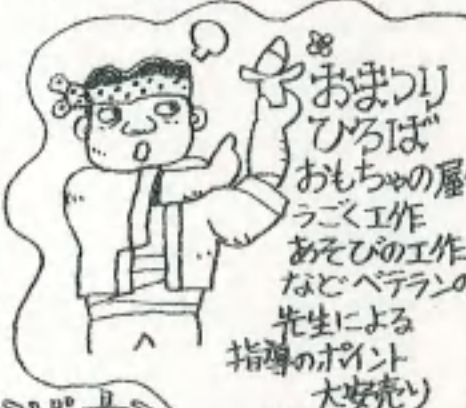 おまつり
ひろば
おもちゃの屋
うごく工作
あそびの工作
などベテランの
先生による
指導のポイント
大安売り